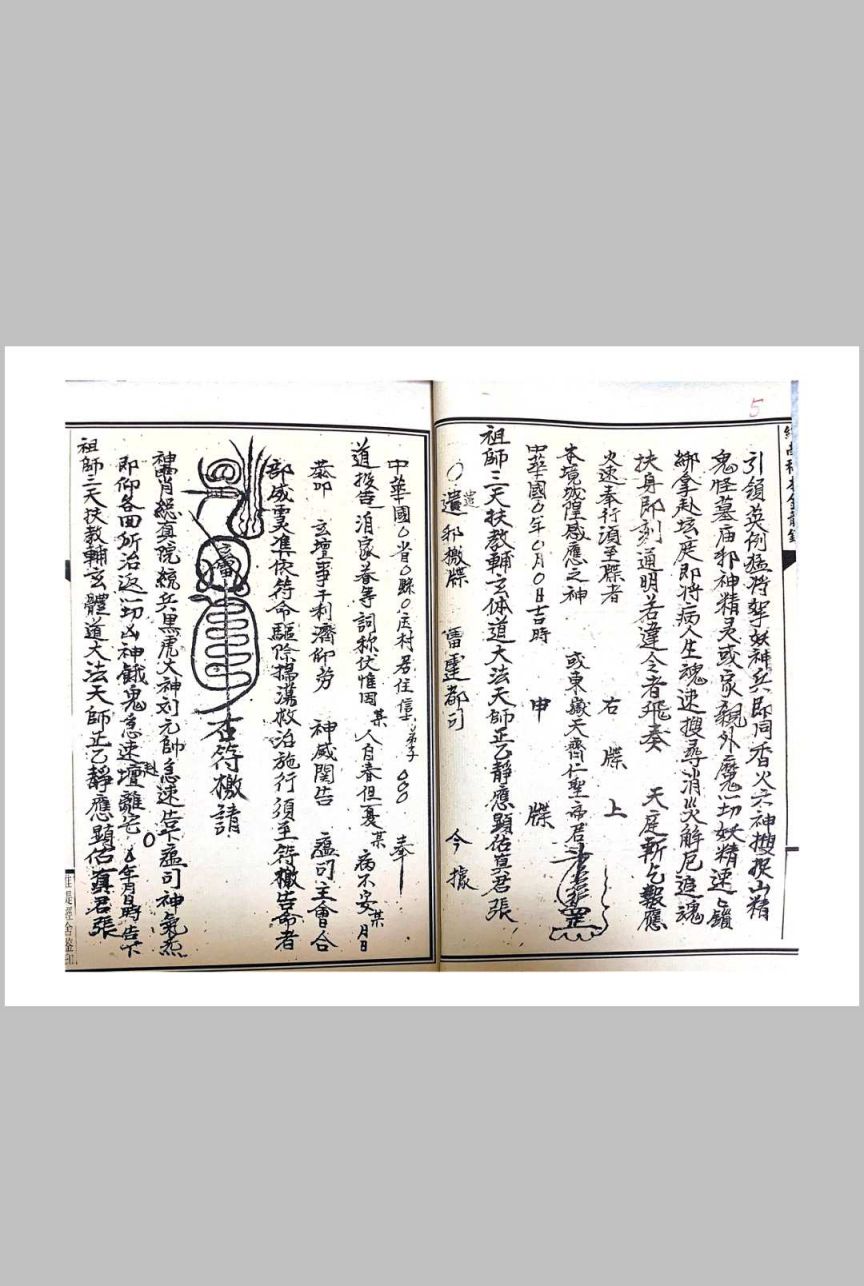 5
引領英例猛將拏妖神兵即同香火六神搜捉山精
鬼怪墓庙邪神精灵或家親外魔一切妖精速与鎖
綁拿赴坛庭即將病人生魂速搜尋消災解厄追魂
扶身即刻通明若違令者飛奏 天庭斬乞報應
火速奉行須至牒者 右牒上
本境城隍感應之神 或東嶽天齊仁聖帝君
中華國〇年〇月〇日吉時 申 牒
祖師三天扶教輔玄体道大法天師正乙靜應顕佑真君張
〇遣邪檄牒 雷霆都司 今據
中華國〇省〇縣〇庄村居住信士弟子 〇〇〇 奉
道投告消家眷等詞称伏惟因某人自春但憂某病不安某月日
恭叩 玄壇事于利濟仰労 神威関告 瘟司主會合
部威灵准依符命驅除掃蕩救治施行須至符檄告命者
雷
右符檄請
神霄総真院統兵黒虎大神刘元帥急速告下瘟司神氣
即仰各回所治返一切凶神餓鬼急速起壇離宅 〇年月日時告下
祖師三天扶教輔玄體道大法天師正乙靜應顕佑真君張